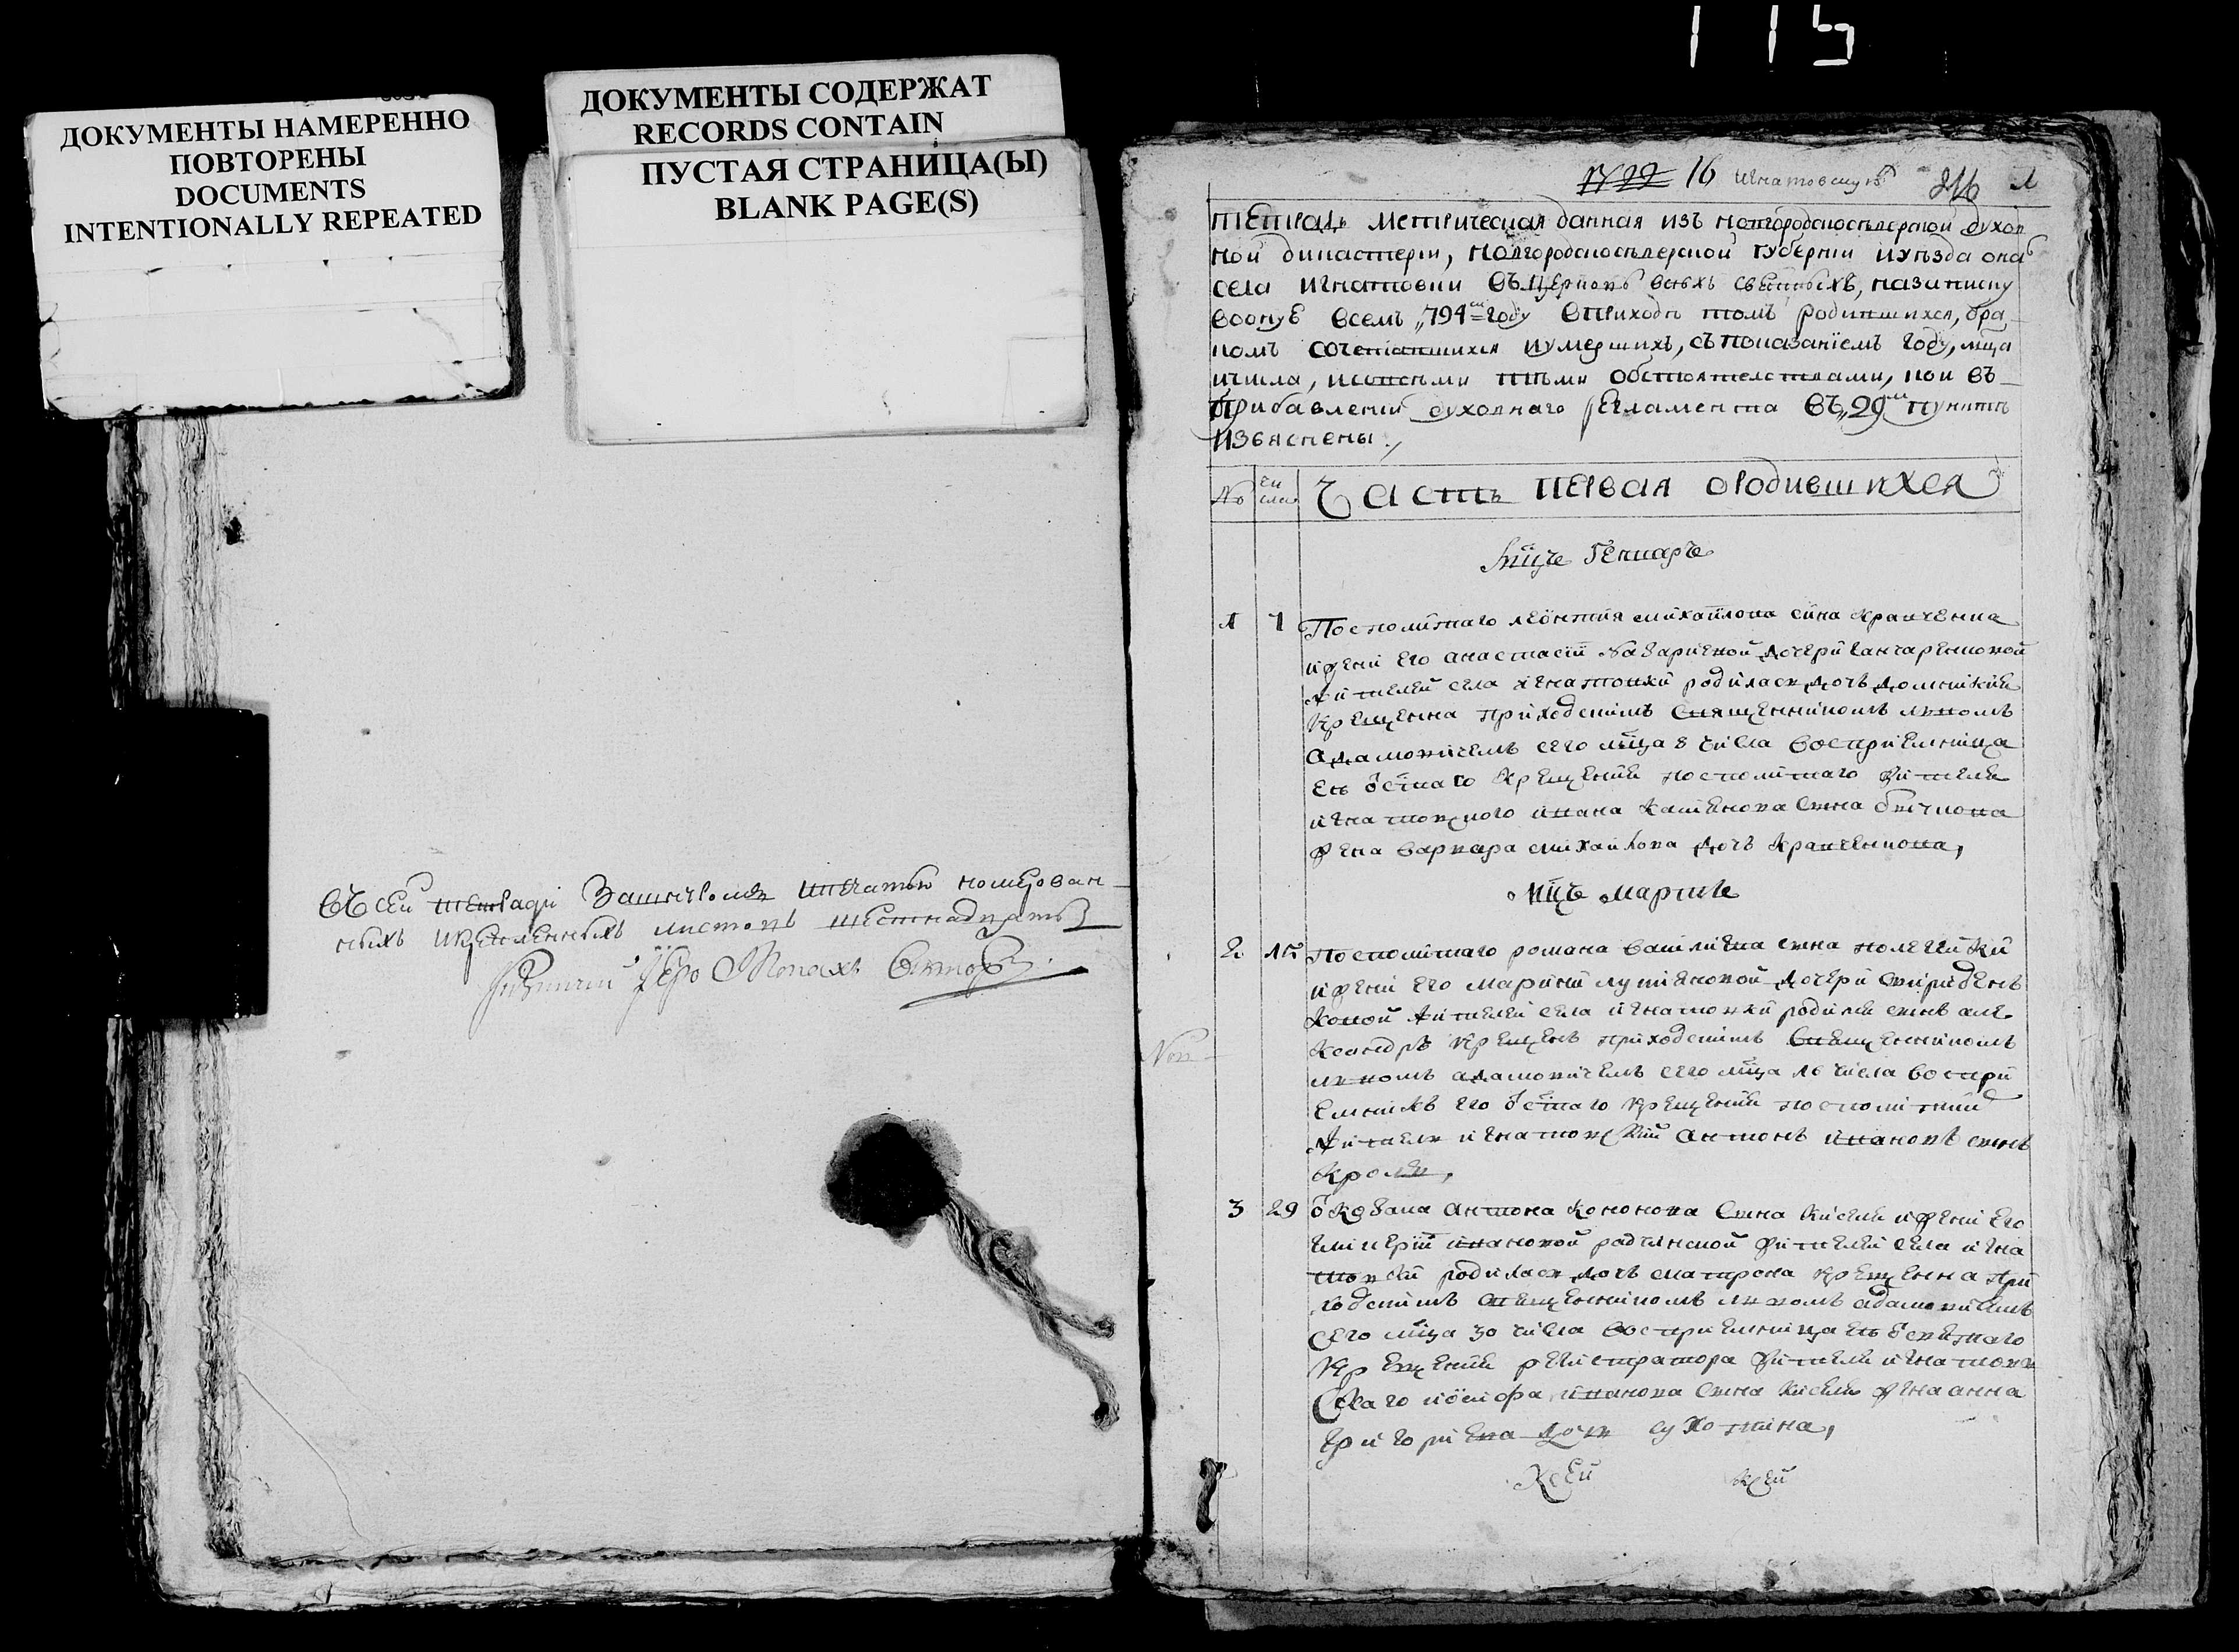 ДОКУМЕНТЫ НАМЕРЕННО
ПОВТОРЕНЫ
DOCUMENTS
INTENTIONALLY REPEATED
ДОКУМЕНТЫ СОДЕРЖАТ
RECORDS CONTAIN
ПУСТАЯ СТРАНИЦА(Ы)
BLANK PAGE(S)
въ сей тетради печатью номерован
ныхъ листовъ шестнадцать
Іеро Монахъ Викторъ
115
16 1
Тетрадь метрическая данная изъ новгородскосѣверской духов
ной дикастерии, новгородскосѣверской губернии и уѣзда онаго
села игнатовки въ церковь всѣхъ святыхъ, на записку
воонуе всемъ 794м году въ приходѣ томъ родившихся, бра
комъ сочетавшихся и умершихъ, съ показаніемъ году, мца
и числа, и со всѣми тѣми обстоятелствами, кои въ
прибавлении духовнаго регламента въ 29м пунктѣ
изъяснены.
No чи сла Часть первая о родившихся
мцъ Генварь
1 7 Посполитаго леонтия михайлова сина кравченка
и жени его анастасіи назариевой дочери ганчаренковой
жителей села игнатовки родилась дочь домникия
крещенна приходскимъ священникомъ
адамовичемъ сего мца 8 числа восприемница
ея о стаго крещения посполитаго жителя
игнатовского ивана сина
жена варвара михайлова дочь кравченкова,
мцъ мартъ
2 15 Посполитаго романа василиева сина
и жени его марини лукияновой дочери свиридень
ковой жителей села игнатовки родился синъ але
ксандръ крещенъ приходскимъ священникомъ
адамовичемъ сего мца 16 числа воспри
емникъ его о стаго крещения посполитий
житель игнатовский антонъ ивановъ синъ
кроль,
3 29 о козака антона кононова сина киселя и жени его
ивановой жителей села игна
товки родилась дочь матрона крещенна при
ходскимъ священникомъ адамовичемъ
сего мца 30 числа восприемница ея о святаго
крещения регистратора жителя игнатов
скаго иосифа иванова сина киселя жена анна
григориева дочь сухотина,